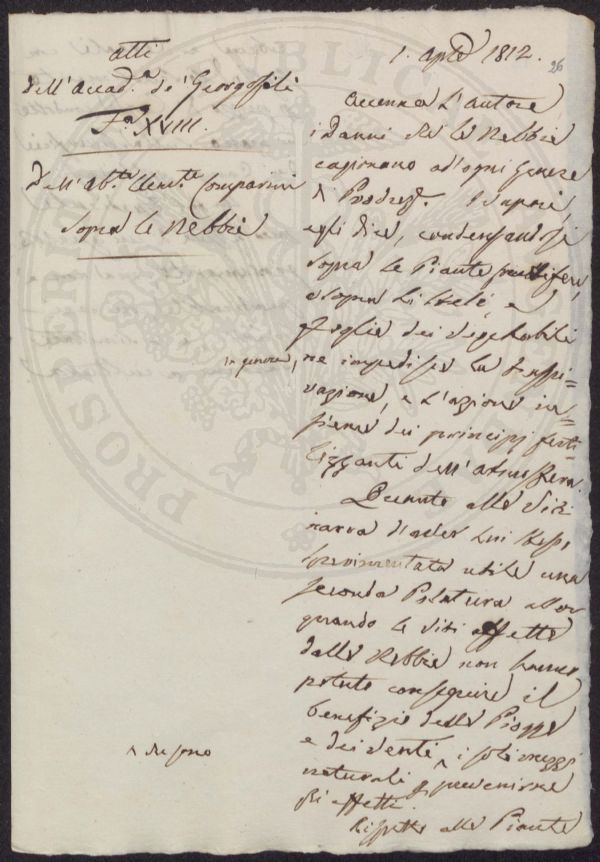 atti
dell'Accad.a de' Georgofili
F.a XVIII.
Dell'ab.te Clem.te Comparini
sopra le Nebbie
1. ap. 1812.
26
Accenna l'autore
i danni che le Nebbie
cagionano ad ogni genere
di Prodott. I vapori,
egli dice, condensandosi
sopra le Piante fruttifere,
e sopra li steli, e
foglie dei vegetabili
in genere,
ne impedisce la traspi=
razione, e l'azione in=
sieme dei principj ferti=
lizzanti dell'atmosfera.
Quanto alle Viti
narra d'aver lui stesso
sperimentata utile una
seconda Potatura allor
quando le viti affette
dalle Nebbie non hanno
potuto conseguire il
benefizio delle Piogge
e dei venti ^ i soli mezzi
^ che sono
naturali p. prevenirne
gli effetti.
Rispetto alle Piante
PROSPERITA
PUBLICA